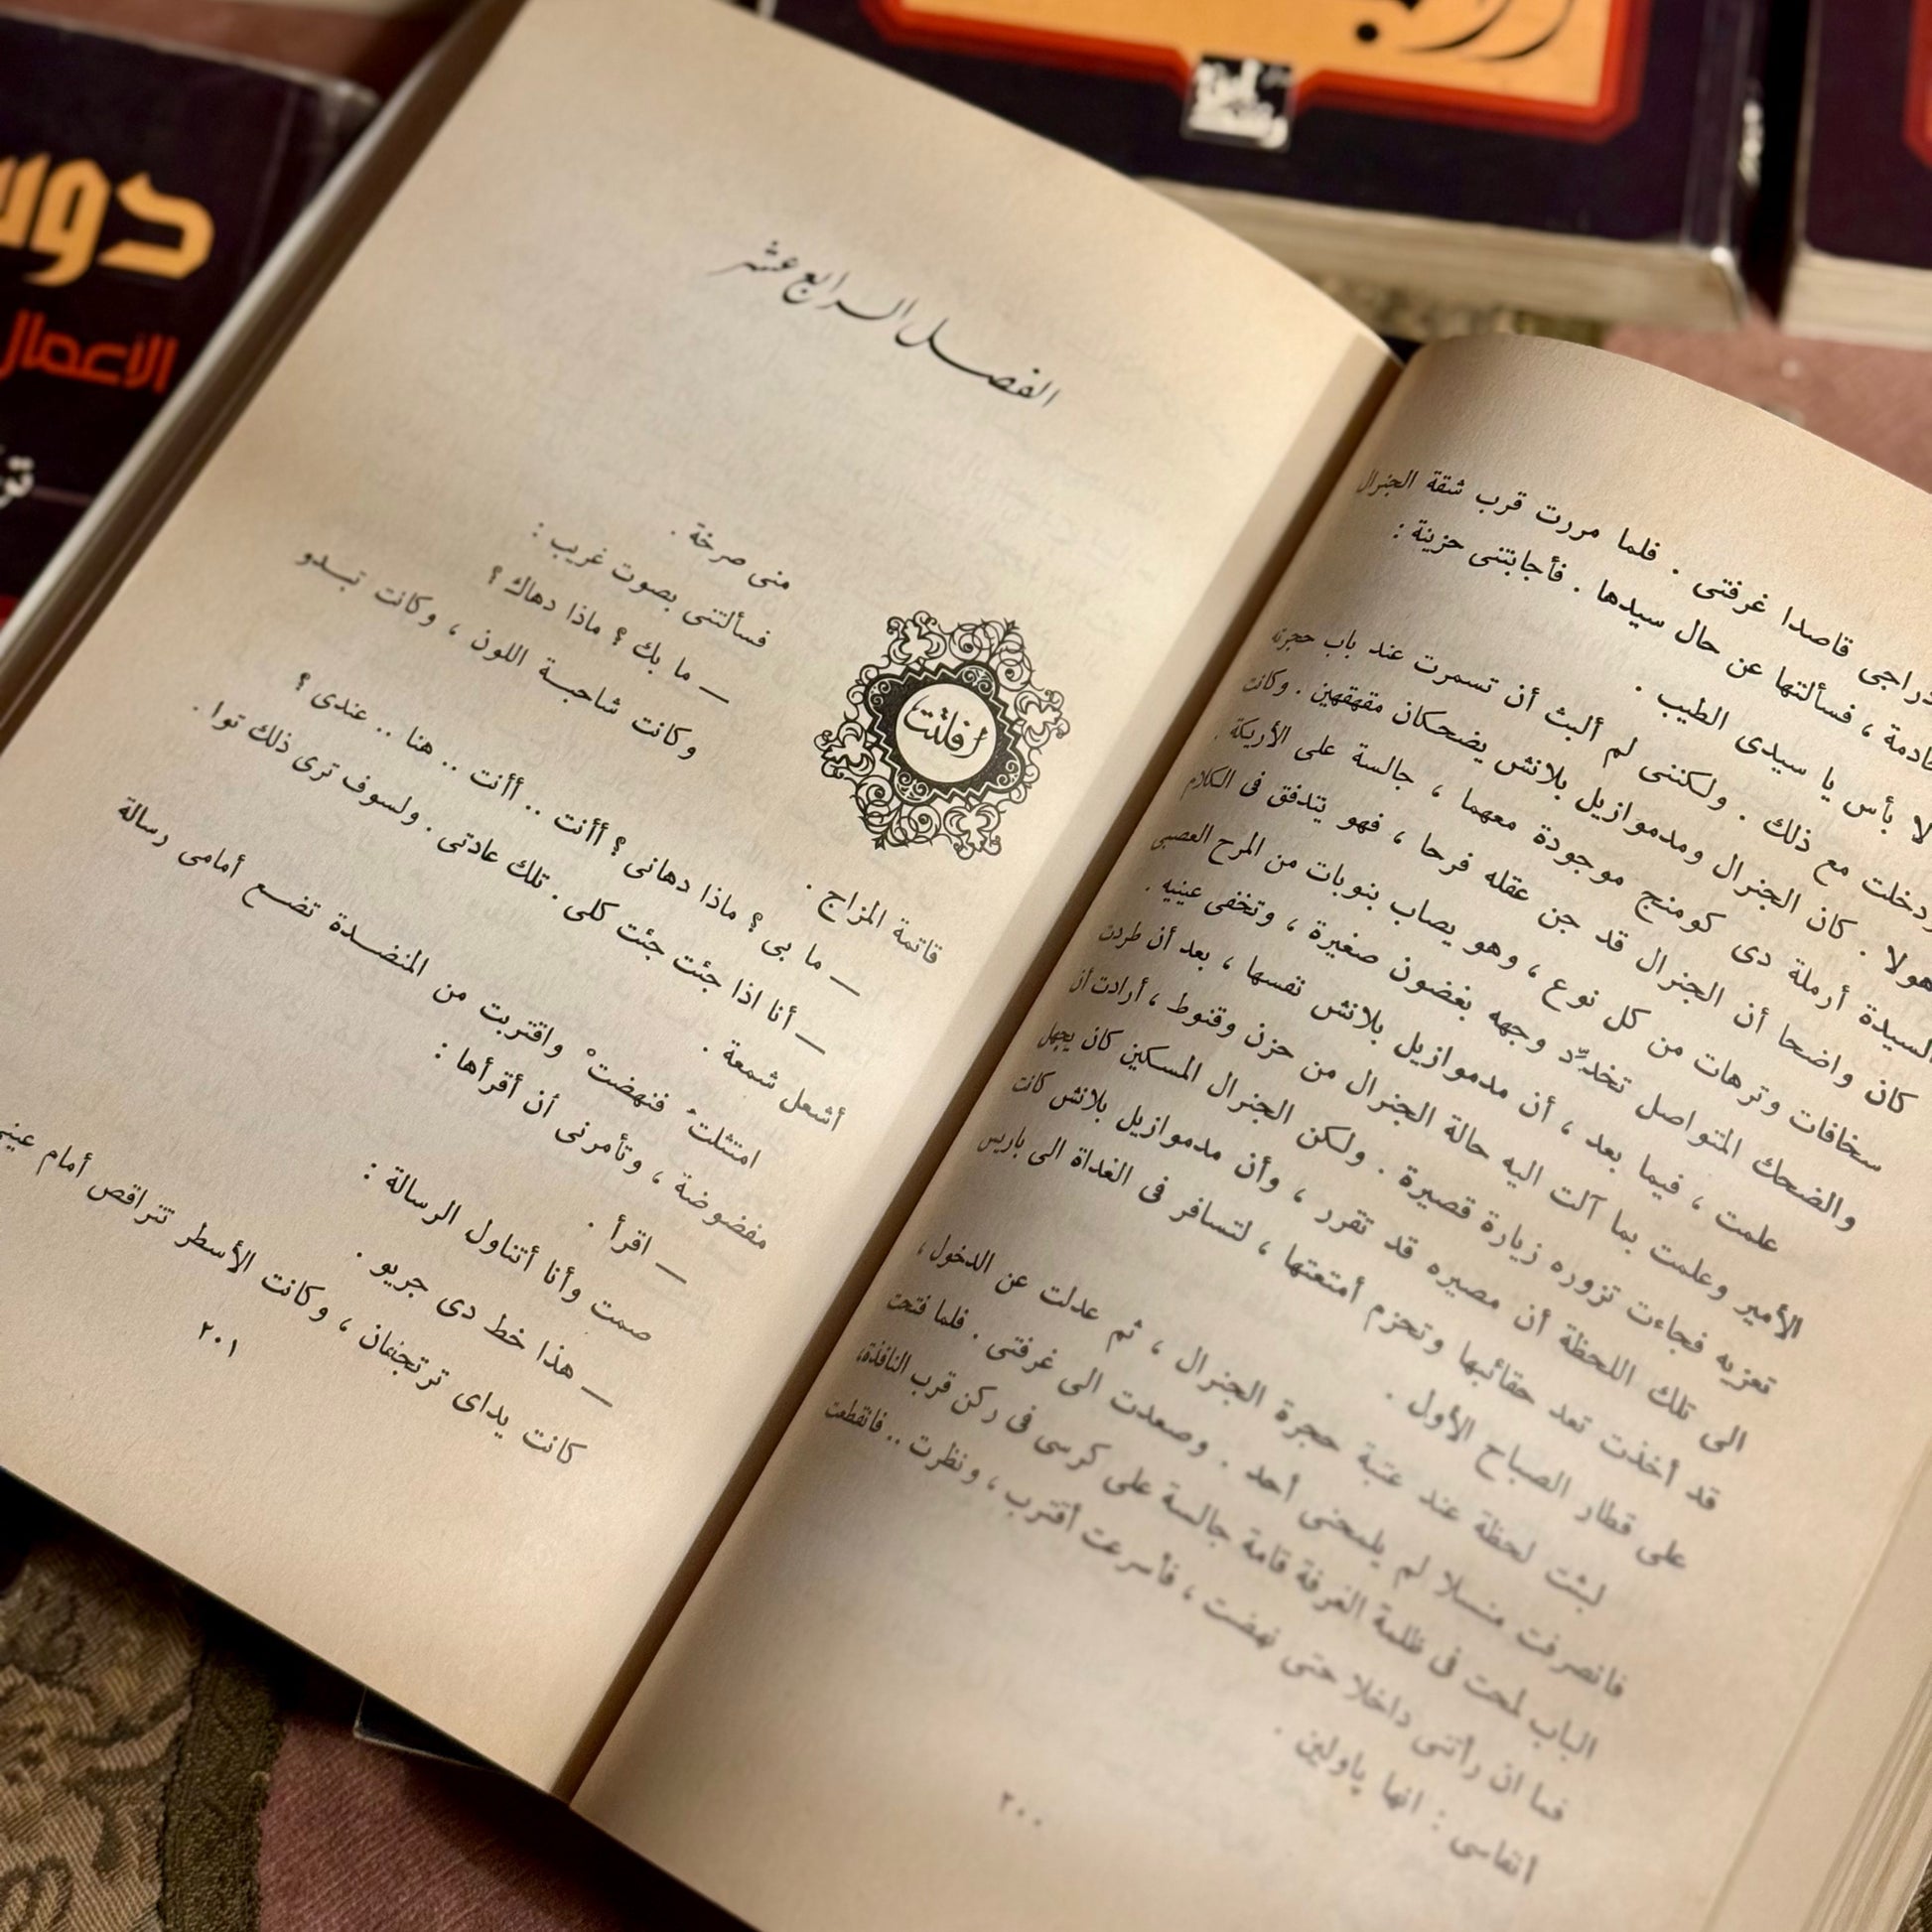 دراجى قاصدا غرفتى . فلما مررت قرب شقة الجنرال
فسألتها عن حال سيدها . فأجابتنى حزينة :
لا بأس يا سيدى الطيب .
دخلت مع ذلك . ولكننى لم ألبث أن تسمرت عند باب حجرته
هولا . كان الجنرال ومدموازيل بلانش يضحكان مقهقهين . وكانت
السيدة أرملة دى كومنج موجودة معهما ، جالسة على الأريكة .
كان واضحا أن الجنرال قد جن عقله فرحا ، فهو يتدفق فى الكلام
سخافات وترهات من كل نوع ، وهو يصاب بنوبات من المرح العصبى
والضحك المتواصل تخدِّد وجهه بغضون صغيرة ، وتخفى عينيه .
علمت ، فيما بعد ، أن مدموازيل بلانش نفسها ، بعد أن طردت
الأمير وعلمت بما آلت اليه حالة الجنرال من حزن وقنوط ، أرادت أن
تعزيه فجاءت تزوره زيارة قصيرة . ولكن الجنرال المسكين كان يجهل
الى تلك اللحظة أن مصيره قد تقرر ، وأن مدموازيل بلانش كانت
قد أخذت تعد حقائبها وتحزم أمتعتها ، لتسافر فى الغداة الى باريس
على قطار الصباح الأول .
لبثت لحظة عند عتبة حجرة الجنرال ، ثم عدلت عن الدخول ،
فانصرفت منسلا لم يلمحنى أحد . وصعدت الى غرفتى . فلما فتحت
الباب لمحت فى ظلمة الغرفة قامة جالسة على كرسى فى ركن قرب النافذة،
فما ان رأتنى داخلا حتى نهضت ، فأسرعت أقترب ، ونظرت .. فانقطعت
أنفاسى : انها پاولين .
٢٠٠
الفصل الرابع عشر
أفلتت
منى صرخة .
فسألتنى بصوت غريب :
— ما بك ؟ ماذا دهاك ؟
وكانت شاحبة اللون ، وكانت تبدو
قاتمة المزاج .
— ما بى ؟ ماذا دهانى ؟ أأنت .. أأنت .. هنا .. عندى ؟
— أنا اذا جئت جئت كلى . تلك عادتى . ولسوف ترى ذلك توا .
أشعل شمعة .
امتثلتُ فنهضتْ واقتربت من المنضدة تضع أمامى رسالة
مفضوضة ، وتأمرنى أن أقرأها :
— اقرأ .
صمت وأنا أتناول الرسالة :
— هذا خط دى جريو .
كانت يداى ترتجفان ، وكانت الأسطر تتراقص أمام عينى
٢٠١
الاعمال